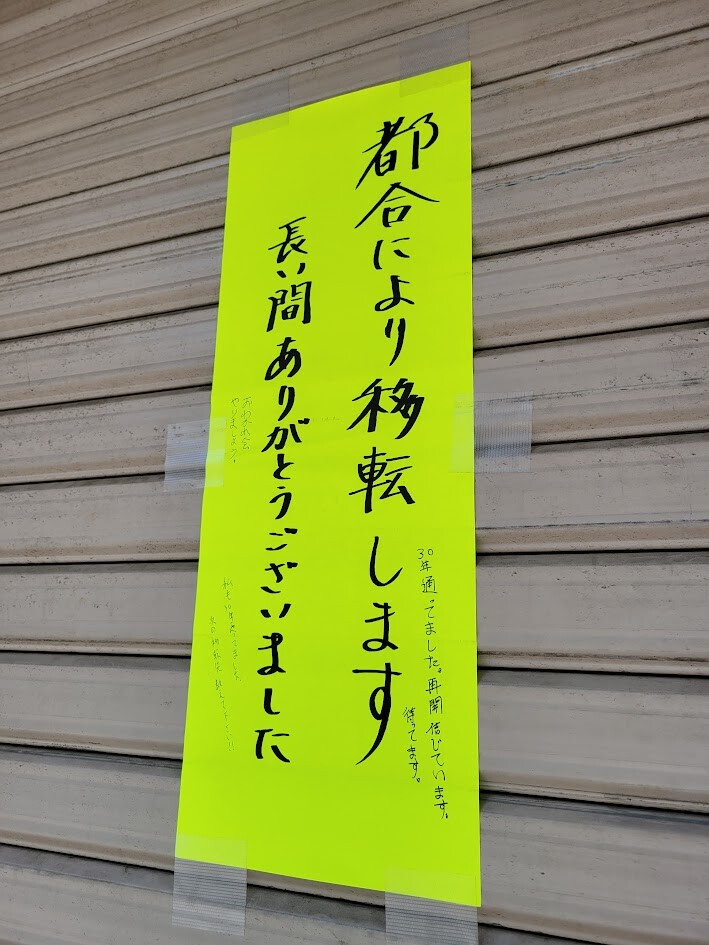 都合により移転します
長い間ありがとうございました
30年通ってました。再開信じています。
待ってます。
おわかれ会
やりましょう。